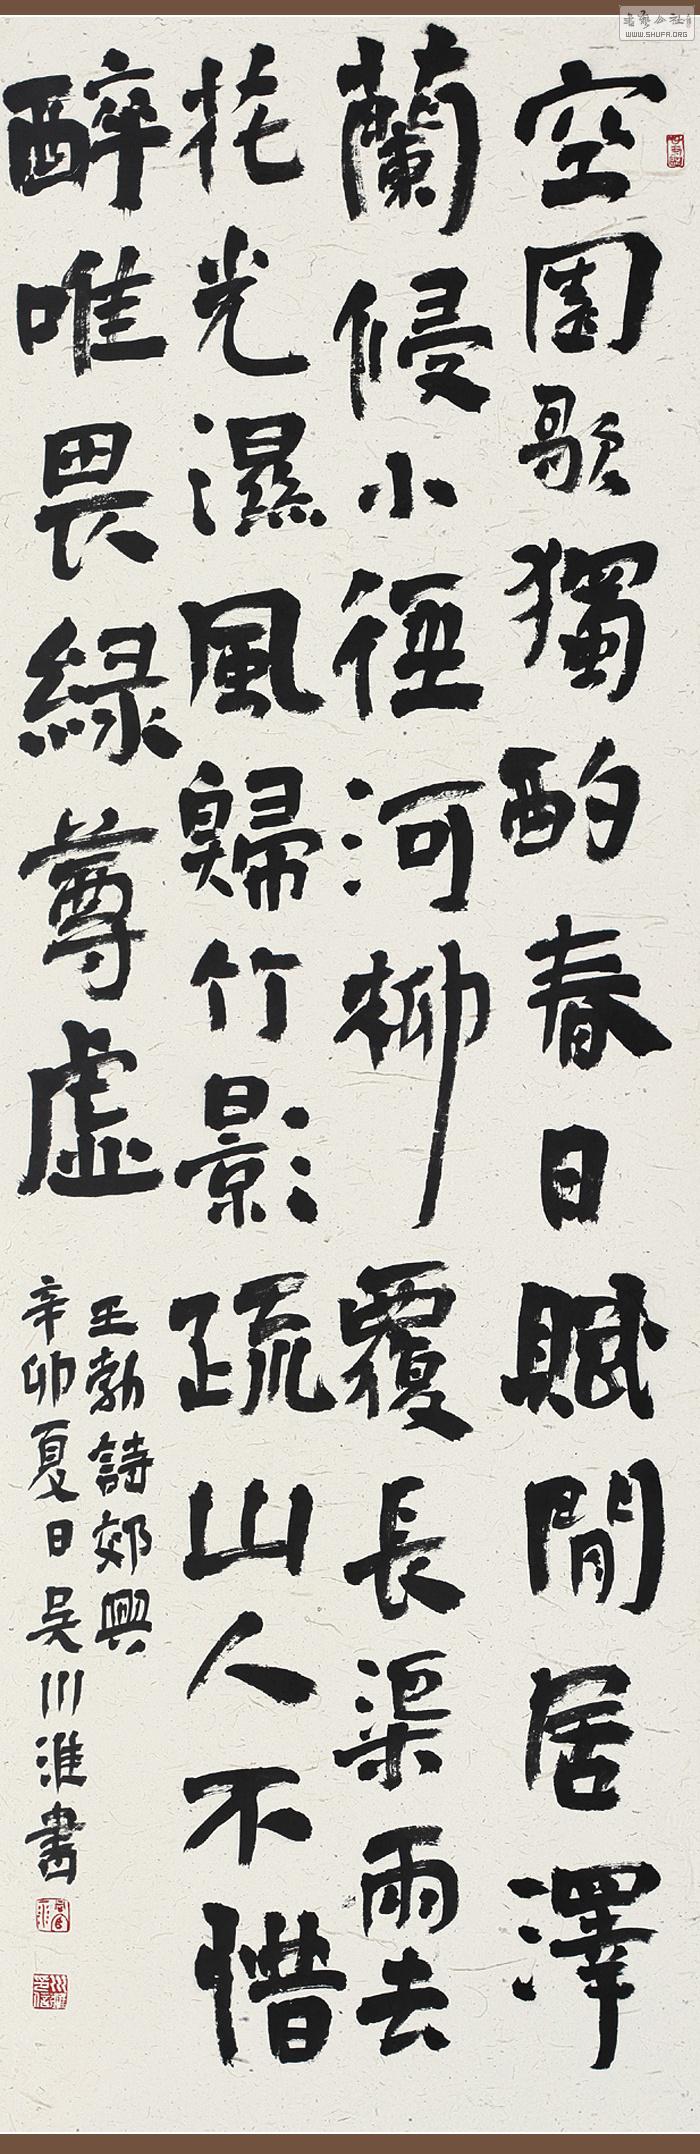 空園歌獨酌春日賦閒居澤
蘭侵小徑河柳覆長渠雨去
花光濕風歸竹影疏山人不惜
醉唯畏綠尊虛
王勃詩郊興
辛卯夏日吳川淮書
WWW.SHUFA.ORG